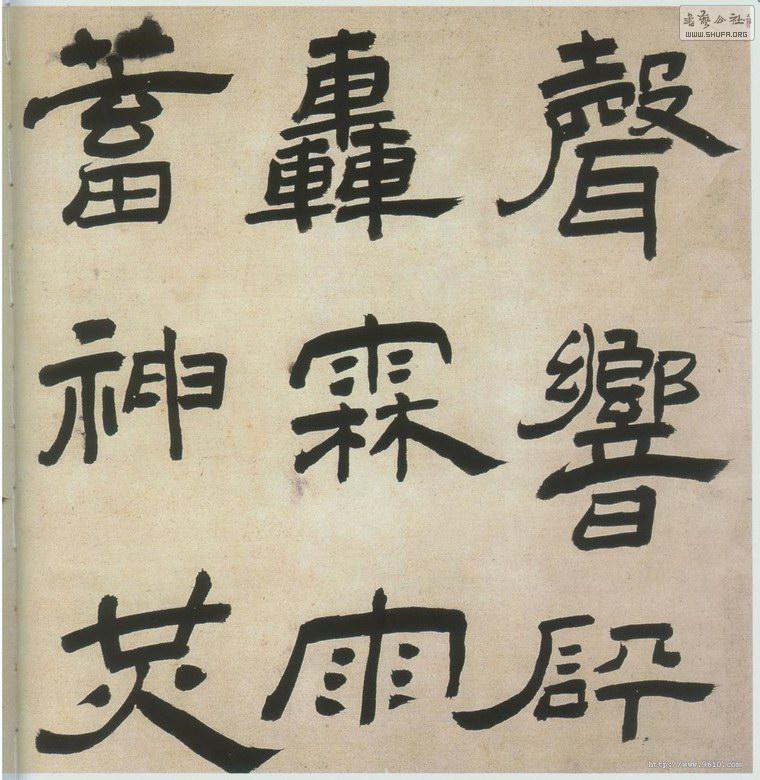 聲響
轟霖雨
蓄神炗
書藝公社
WWW.SHUFA.ORG
http://www.9610.com